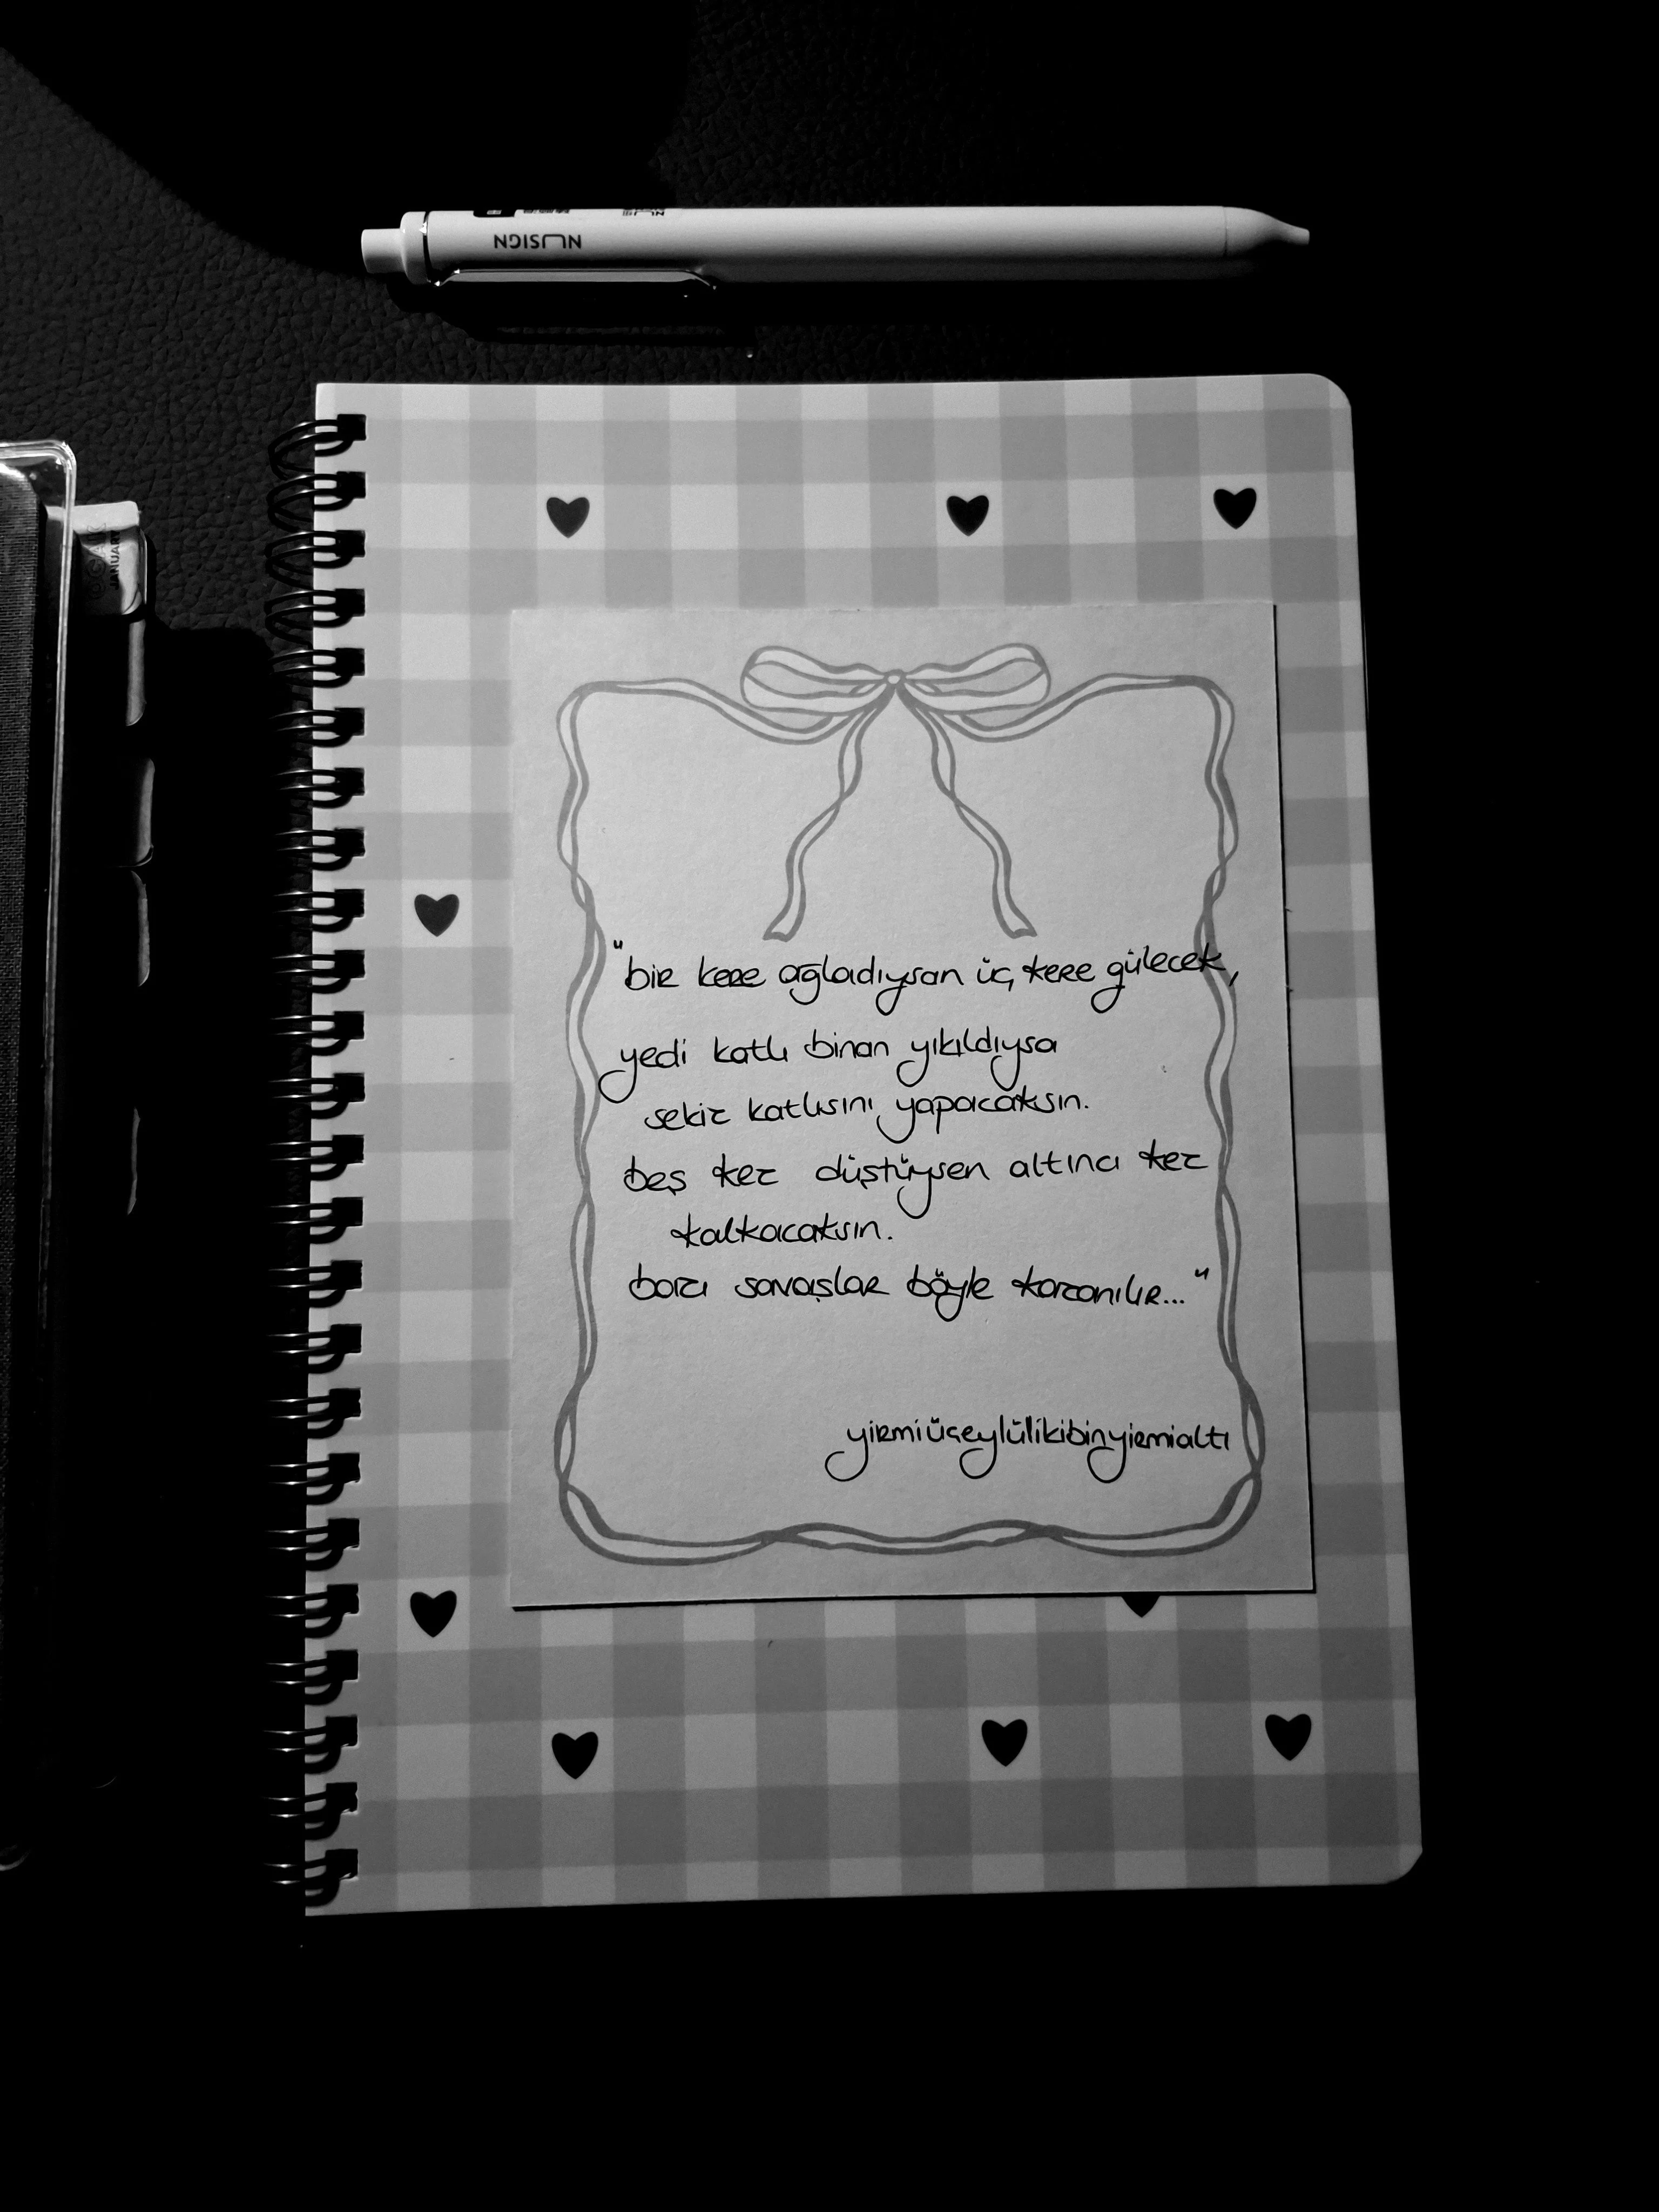 NUSIGN
JANUARY
"bir kere ağladıysan üç kere gülecek,
yedi katlı binan yıkıldıysa
sekiz katlısını yapacaksın.
beş kez düştüysen altıncı kez
kalkacaksın.
bazı savaşlar böyle kazanılır..."
yirmiüçeylülikibinyirmialtı